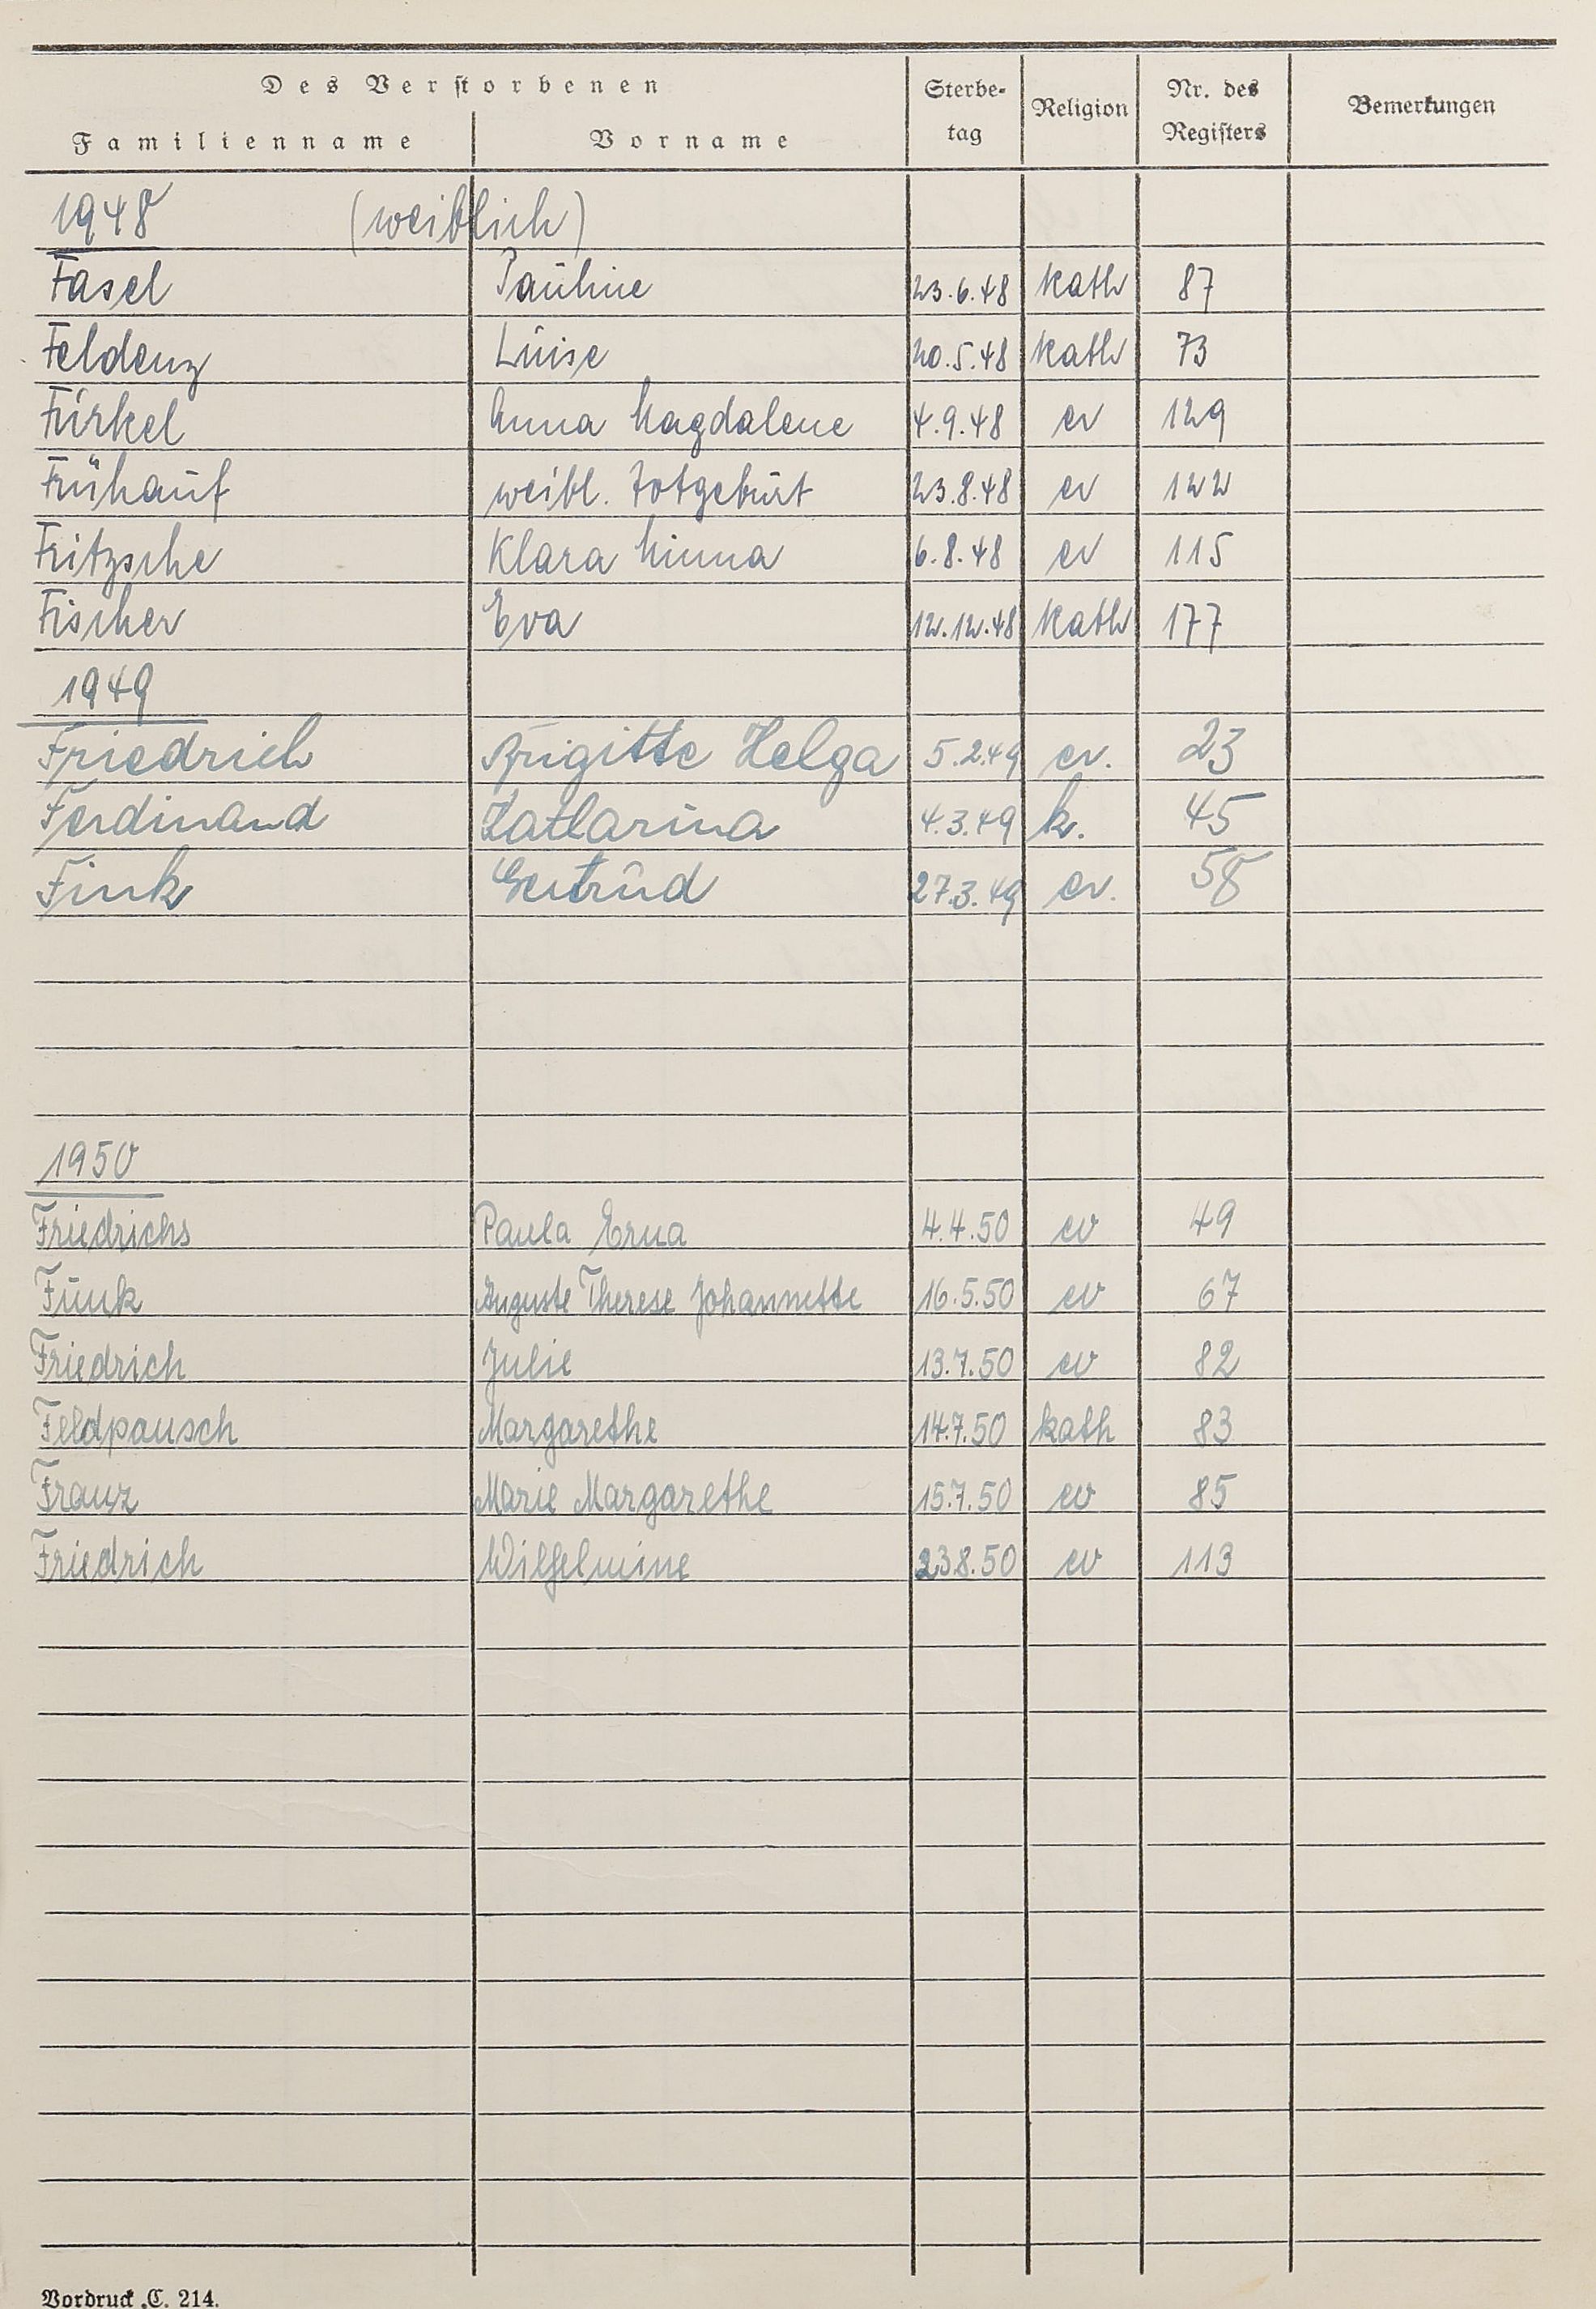 Des Verstorbenen
Familienname Vorname Sterbe-tag Religion Nr. des Registers Bemerkungen
1948 (weiblich)
Fasel Pauline 23.6.48 kath 87
Feldenz Luise 20.5.48 kath 73
Fürkel Anna Magdalene 4.9.48 ev 129
Frühauf weibl. Totgeburt 23.8.48 ev 122
Fritzsche Klara Minna 6.8.48 ev 115
Fischer Eva 12.12.48 kath 177
1949
Friedrich Brigitte Helga 5.2.49 ev. 23
Ferdinand Katharina 4.3.49 k. 45
Fink Gertrud 27.3.49 ev. 58
1950
Friedrichs Paula Erna 4.4.50 ev 49
Funk Auguste Therese Johannette 16.5.50 ev 67
Friedrich Julie 13.7.50 ev 82
Feldpausch Margarethe 14.7.50 kath 83
Franz Marie Margarethe 15.7.50 ev 85
Friedrich Wilhelmine 23.8.50 ev 113
Vordruck C. 214.